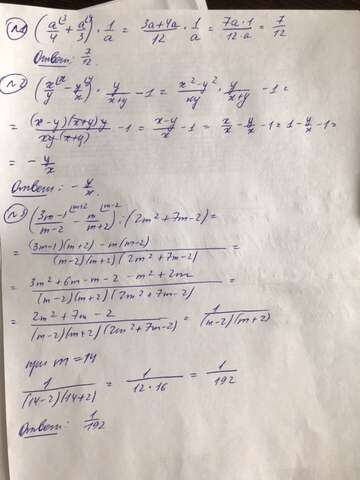 №1) (a/4 + a/3) · 1/a = (3a+4a)/12 · 1/a = (7a·1)/(12·a) = 7/12
Ответ: 7/12.
№2) (x/y - y/x) · y/(x+y) - 1 = (x²-y²)/(xy) · y/(x+y) - 1 =
= ((x-y)(x+y)y)/(xy(x+y)) - 1 = (x-y)/x - 1 = x/x - y/x - 1 = 1 - y/x - 1 =
= - y/x
Ответ: - y/x.
№3) ((3m-1)/(m-2) - m/(m+2)) : (2m²+7m-2) =
= ((3m-1)(m+2) - m(m-2))/((m-2)(m+2)(2m²+7m-2)) =
= (3m²+6m-m-2-m²+2m)/((m-2)(m+2)(2m²+7m-2)) =
= (2m²+7m-2)/((m-2)(m+2)(2m²+7m-2)) = 1/((m-2)(m+2))
при m=14
1/((14-2)(14+2)) = 1/(12·16) = 1/192
Ответ: 1/192